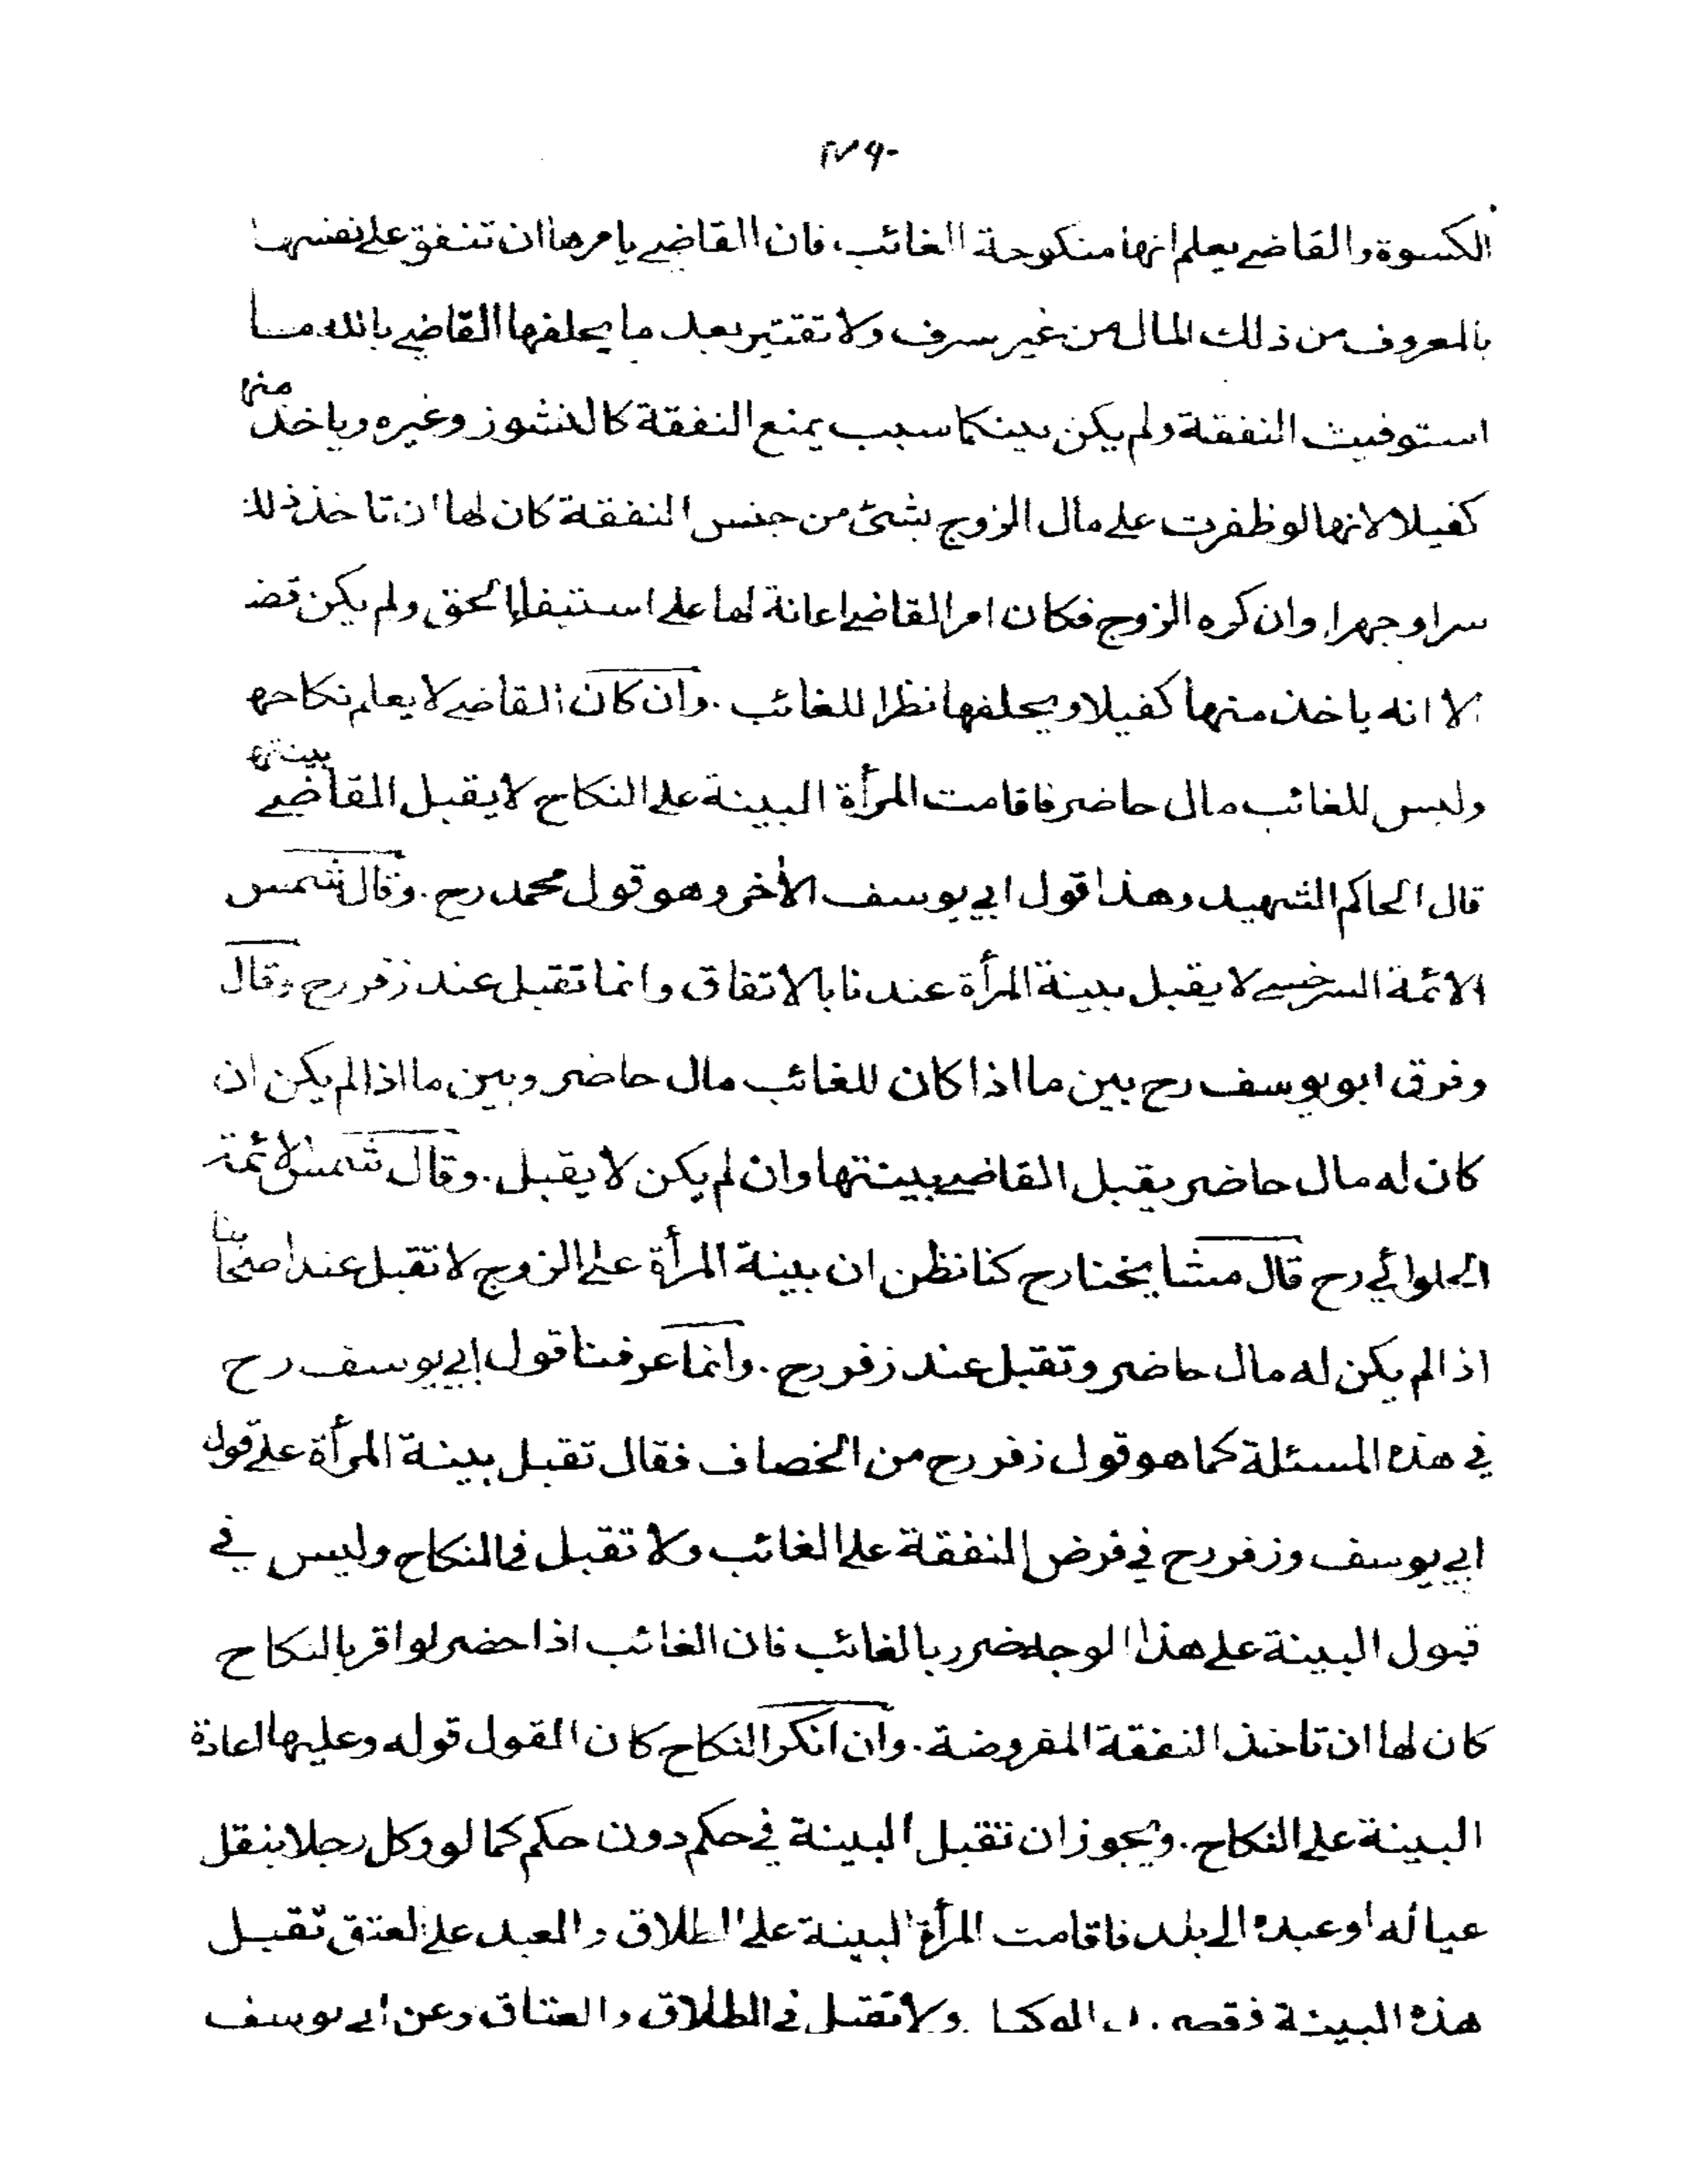 الكسوة والقاضي يعلم انها منكوحة الغائب، فان القاضي يامرها ان تنفق على نفسها
بالمعروف من ذلك المال من غير سرف ولا تقتير بعد ما يحلفها القاضي بالله ما
استوفيت النفقة ولم يكن بينكما سبب يمنع النفقة كالنشوز وغيره وياخذ منها
كفيلا لانها لو ظفرت على مال الزوج بشئ من جنس النفقة كان لها ان تاخذ ذلك
سرا وجهرا، وان كره الزوج فكان امر القاضي اعانة لها على استيفاء الحق ولم يكن قضـ
الا انه ياخذ منها كفيلا ويحلفها نظرا للغائب . وان كان القاضي لا يعلم نكاحها
وليس للغائب مال حاضر فاقامت المرأة البينة على النكاح لا يقبل القاضي بينتها
قال الحاكم الشهيد وهذا قول ابي يوسف الأخر وهو قول محمد رح . وقال شمس
الائمة السرخسي لا يقبل بينة المرأة عندنا بالاتفاق وانما تقبل عند زفر رح وقال
وفرق ابو يوسف رح بين ما اذا كان للغائب مال حاضر وبين ما اذا لم يكن ان
كان له مال حاضر يقبل القاضي بينتها وان لم يكن لا يقبل . وقال شمس الائمة
الحلوائي رح قال مشايخنا رح كنا نظن ان بينة المرأة على الزوج لا تقبل عند اصحابنا
اذا لم يكن له مال حاضر وتقبل عند زفر رح . وانما عرفنا قول ابي يوسف رح
في هذه المسئلة كما هو قول زفر رح من الخصاف فقال تقبل بينة المرأة على قول
ابي يوسف وزفر رح في فرض النفقة على الغائب ولا تقبل في النكاح وليس في
قبول البينة على هذا الوجه ضرر بالغائب فان الغائب اذا حضر لو اقر بالنكاح
كان لها ان تاخذ النفقة المفروضة . وان انكر النكاح كان القول قوله وعليها اعادة
البينة على النكاح . ويجوز ان تقبل البينة في حكم دون حكم كما لو وكل رجلا بنقل
عياله او عبده الى بلد فاقامت المرأة البينة على الطلاق والعبد على العتق تقبل
هذه البينة ولا تقبل في الطلاق والعتاق وعن ابي يوسف